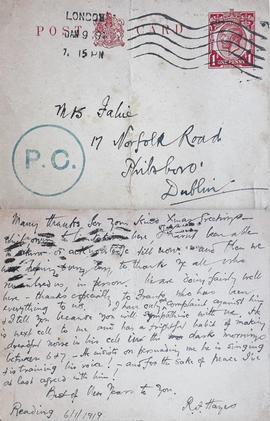 LONDON
JAN 9
7.15 PM
POST CARD
ONE PENNY
Mrs Fahie
17 Norfolk Road
Philsboro'
Dublin
P.C.
Many thanks for your kind Xmas Greetings
been able
till now. and then we
to thank you all who
in person. We are doing fairly well
here - thanks especially to who has been
everything to us. I have one complaint against him
I tell you because you will sympathise with me. He
is next cell to me and has a frightful habit of making
dreadful noise in his cell these dark mornings
between 6 & 7. He insists on persuading me he is singing
& training his voice! - and for the sake of peace I've
at last agreed with him!
Best of New Years to you.
R F Hayes
Reading 6/1/1919